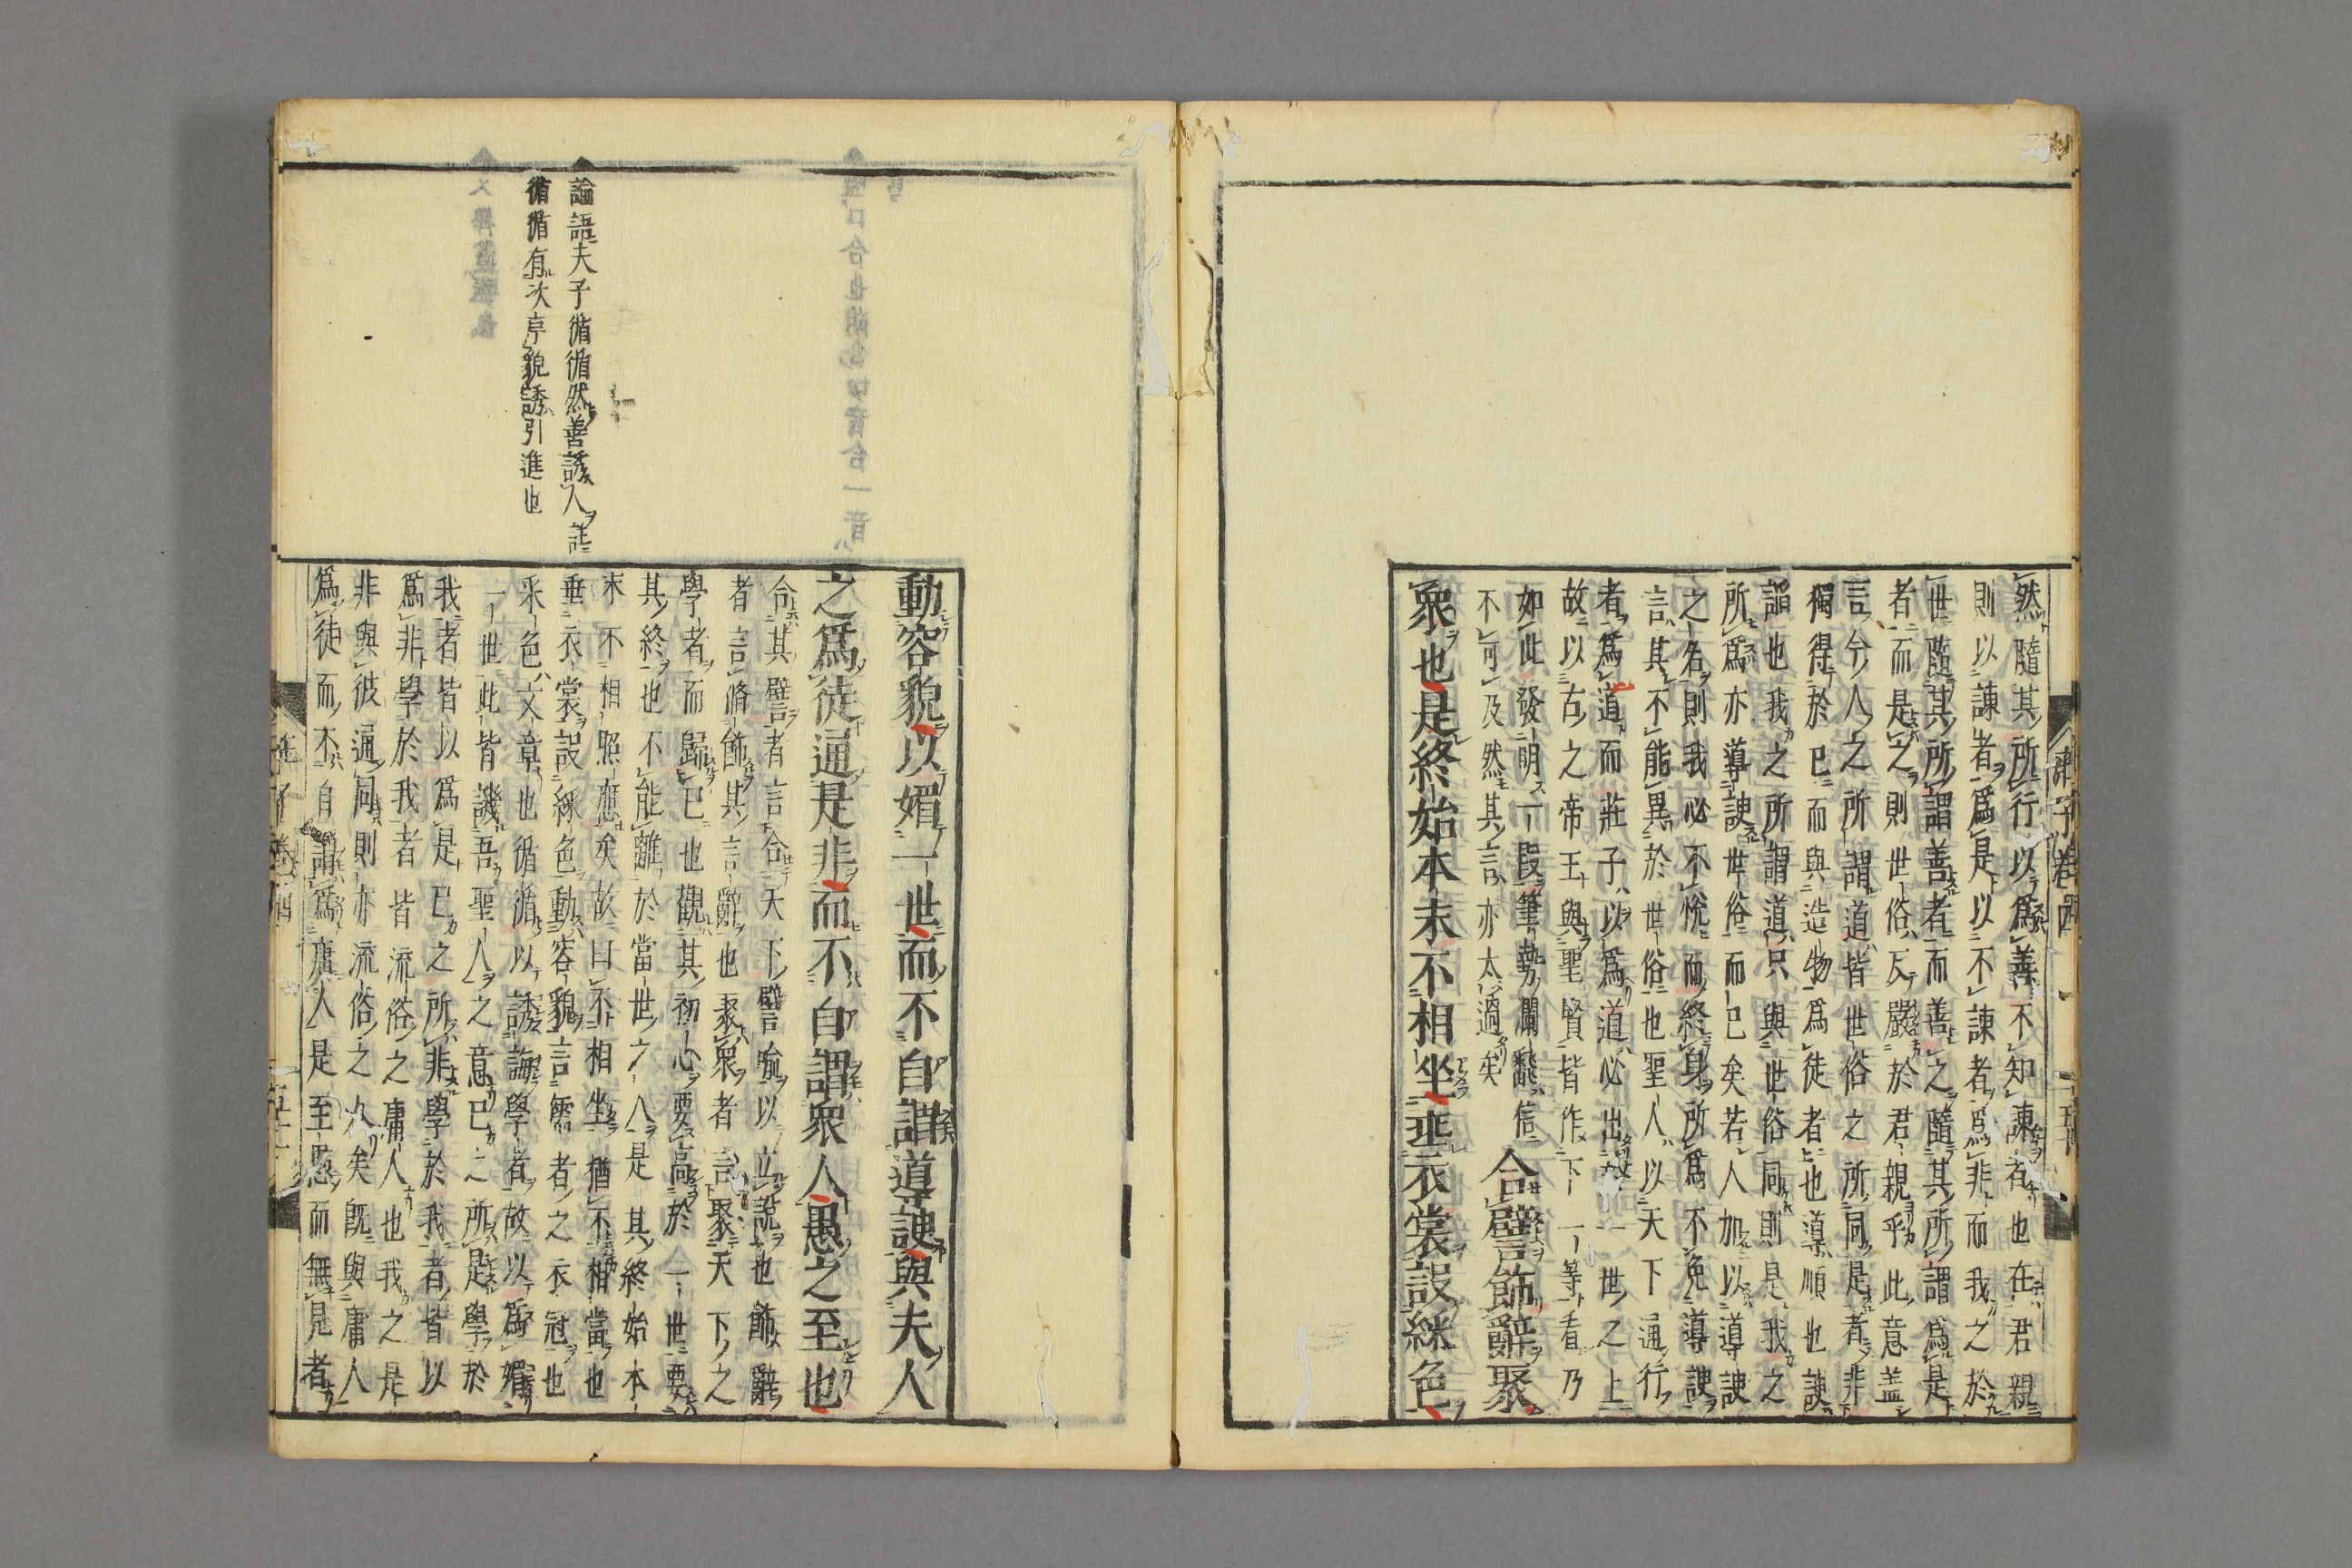 然隨其所行以爲善不知諫者也在君親
則以諫者爲是以不諫者爲非而我之於
世隨其所謂善者而善之隨其所謂爲是
者而是之則世俗反嚴於君親乎此意盖
言今人之所謂道皆世俗之所同是者非
獨得於已而與造物爲徒者也導順也諛
謟也我之所謂道只與世俗同則是我之
所爲亦導諛世俗而已矣若人加以導諛
之名則我必不悅而終身所爲不免導諛
言其不能異於世俗也聖人以天下通行
者爲道而莊子以爲道必出一世之上
故以古之帝王與聖賢皆作下一等看乃
如此發明一段筆勢瀾飜信
不可及然其言亦太過矣
合譬飾辭聚
衆也是終始本末不相坐垂衣裳設綵色
論語夫子循循然善誘人註
循循有次序貌誘引進也
動容貌以媚一世而不自謂導諛與夫人
之爲徒通是非而不自謂衆人愚之至也
合其譬者言合天下譬喻以立說也飾辭
者言脩飾其言辭也聚衆者言聚天下之
學者而歸已也觀其初心要高於一世要
其終也不能離於當世之人是其終始本
末不相照應矣故曰不相坐猶不相當也
垂衣裳設綵色動容貌言儒者之衣冠也
采色文章也循循以誘誨學者故以爲媚
一世此皆譏吾聖人之意已之所是學於
我者皆以爲是已之所非學於我者皆以
爲非學於我者皆流俗之庸人也我之是
非與彼通同則亦流俗之人矣既與庸人
爲徒而不自謂爲庸人是至愚而無見者